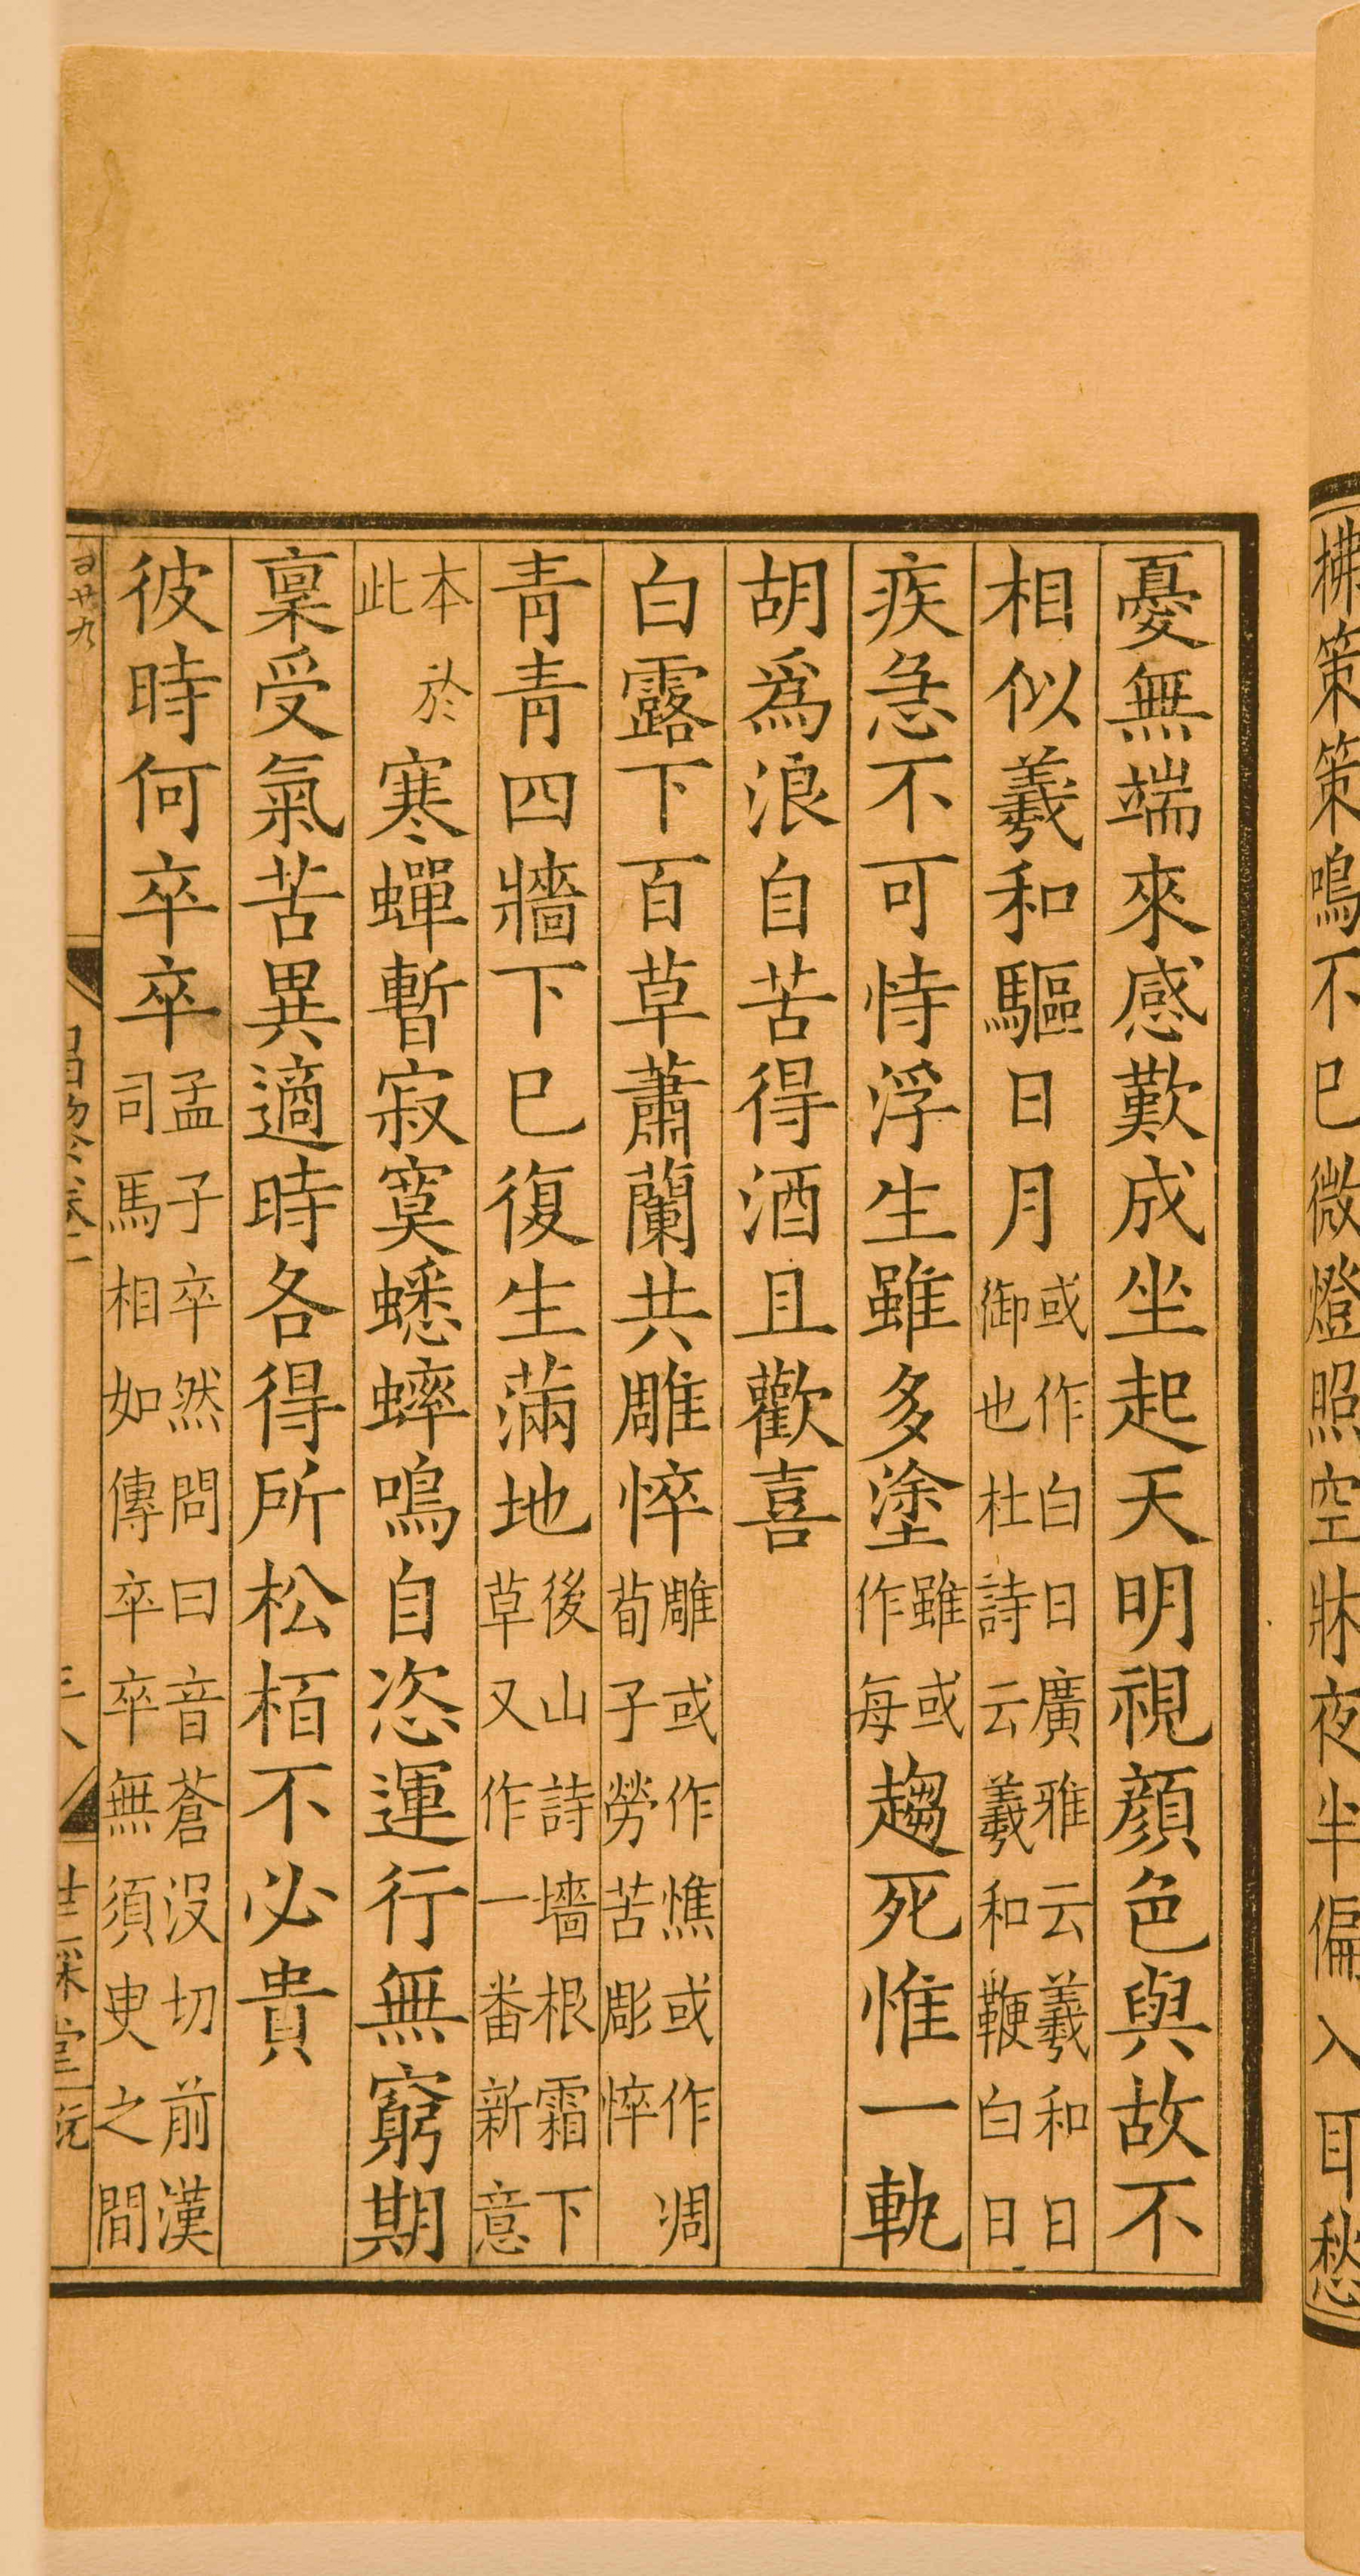 拂策策鳴不已微燈照空牀夜半偏入耳愁
憂無端來感歎成坐起天明視顔色與故不
相似羲和驅日月或作白日廣雅云羲和日御也杜詩云羲和鞭白日
疾急不可恃浮生雖多塗雖或作每趨死惟一軌
胡爲浪自苦得酒且歡喜
白露下百草蕭蘭共雕悴雕或作憔或作凋荀子勞苦彫悴
青青四牆下已復生滿地後山詩墻根霜下草又作一番新意
本於此寒蟬暫寂寞蟋蟀鳴自恣運行無窮期
稟受氣苦異適時各得所松栢不必貴
彼時何卒卒孟子卒然問曰音蒼沒切前漢司馬相如傳卒卒無須臾之間